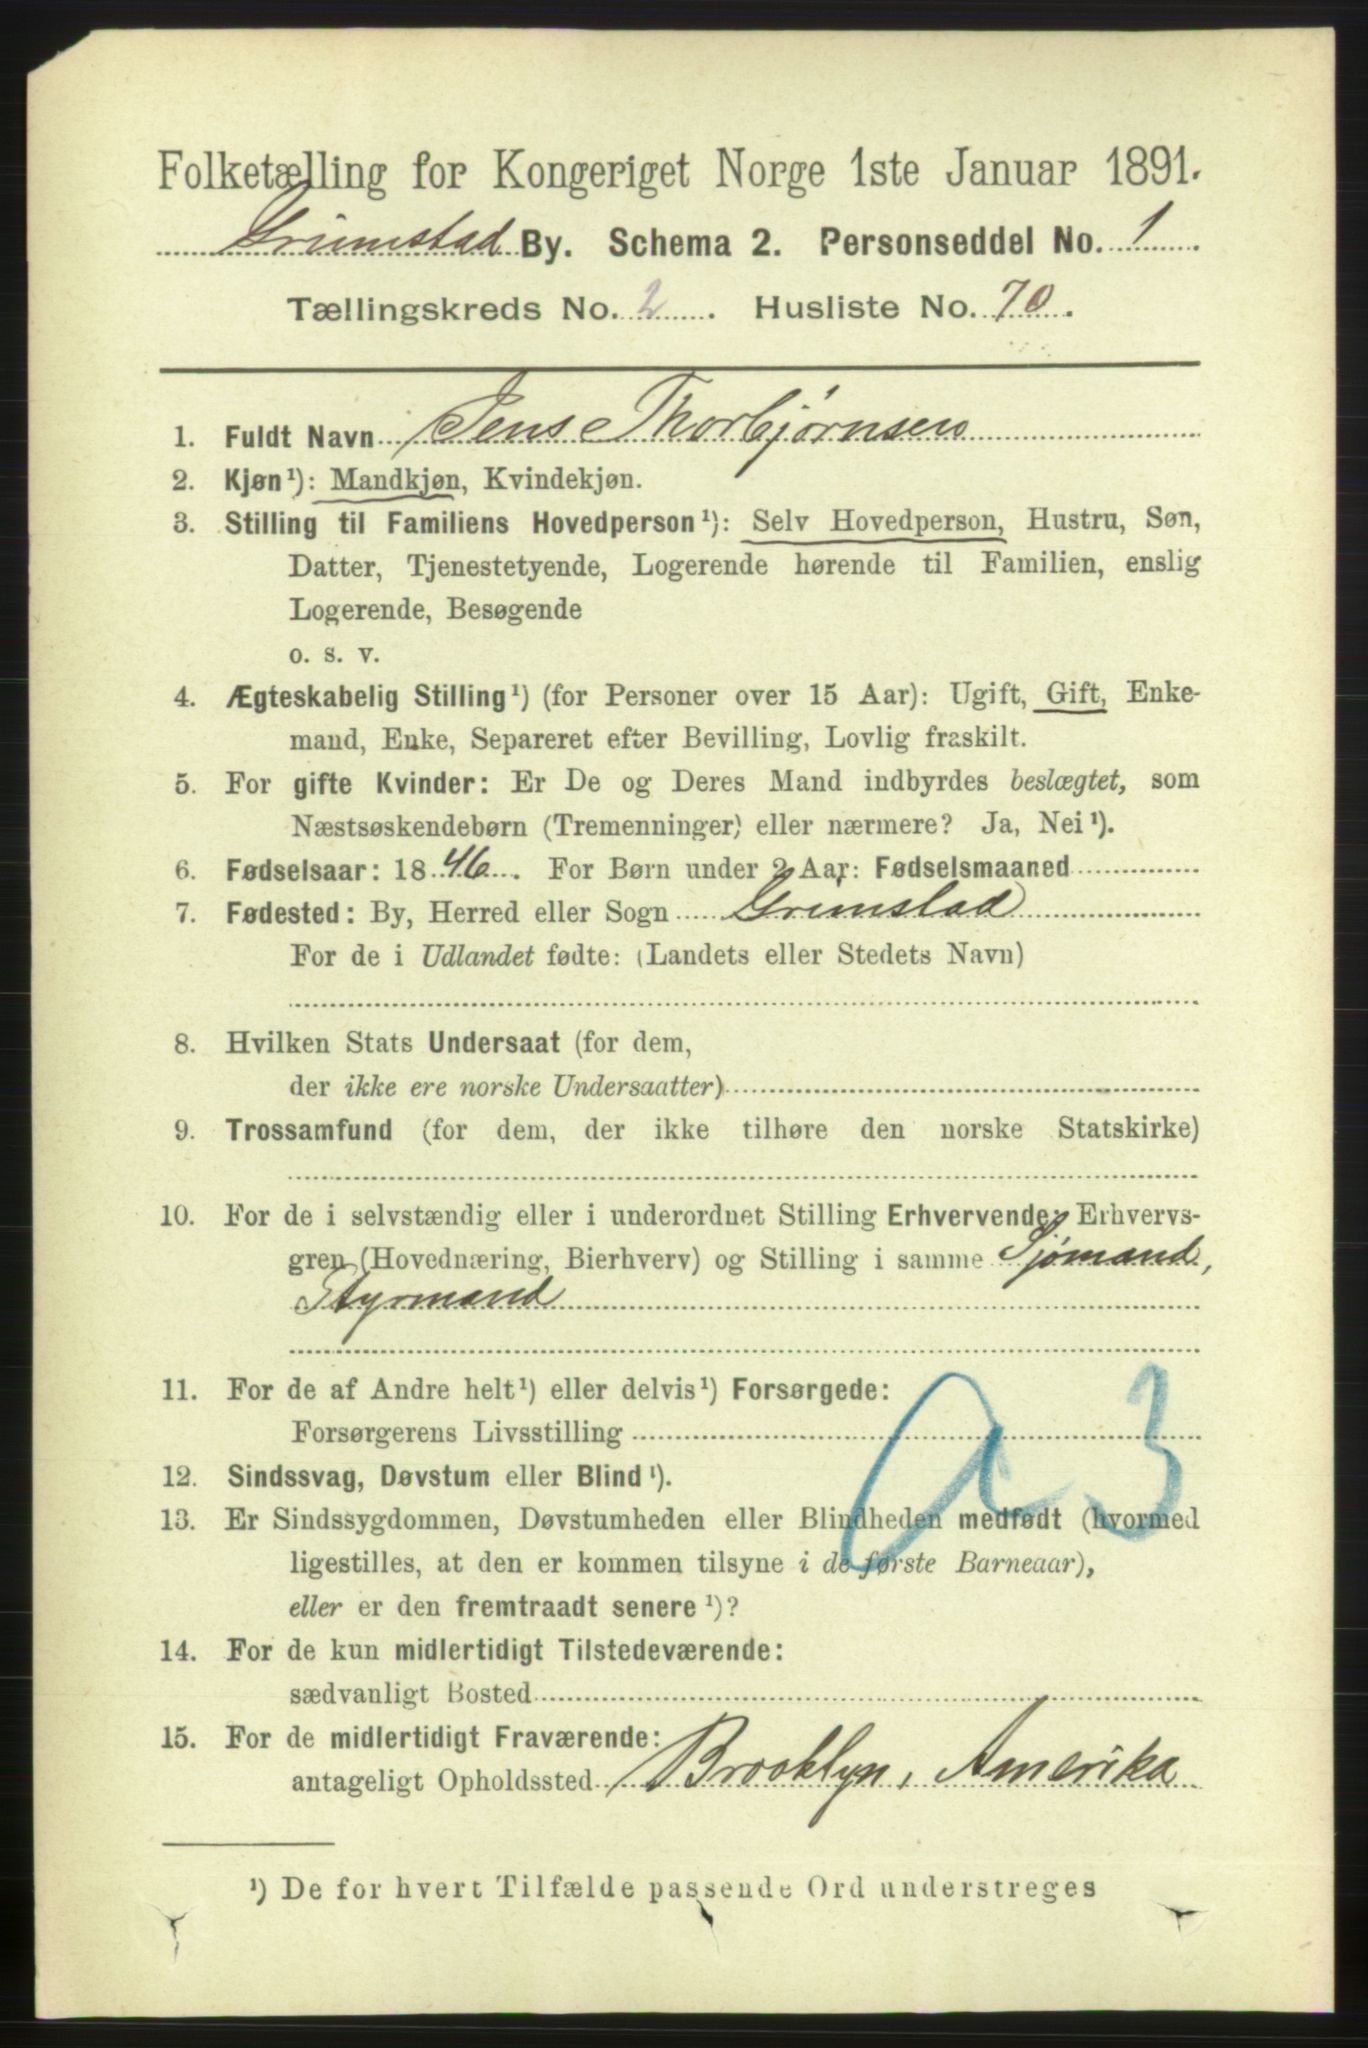 Folketælling for Kongeriget Norge 1ste Januar 1891.
Grimstad By. Schema 2. Personseddel No. 1
Tællingskreds No. 2. Husliste No. 70.
1. Fuldt Navn Jens Thorbjørnsen
2. Kjøn¹): Mandkjøn, Kvindekjøn.
3. Stilling til Familiens Hovedperson¹): Selv Hovedperson, Hustru, Søn,
Datter, Tjenestetyende, Logerende hørende til Familien, enslig
Logerende, Besøgende
o. s. v.
4. Ægteskabelig Stilling¹) (for Personer over 15 Aar): Ugift, Gift, Enke-
mand, Enke, Separeret efter Bevilling, Lovlig fraskilt.
5. For gifte Kvinder: Er De og Deres Mand indbyrdes beslægtet, som
Næstsøskendebørn (Tremenninger) eller nærmere? Ja, Nei¹).
6. Fødselsaar: 1846. For Børn under 2 Aar: Fødselsmaaned
7. Fødested: By, Herred eller Sogn Grimstad
For de i Udlandet fødte: (Landets eller Stedets Navn)
8. Hvilken Stats Undersaat (for dem,
der ikke ere norske Undersaatter)
9. Trossamfund (for dem, der ikke tilhøre den norske Statskirke)
10. For de i selvstændig eller i underordnet Stilling Erhvervende: Erhvervs-
gren (Hovednæring, Bierhverv) og Stilling i samme Sjømand,
Styrmand
11. For de af Andre helt¹) eller delvis¹) Forsørgede:
Forsørgerens Livsstilling
a 3
12. Sindssvag, Døvstum eller Blind¹).
13. Er Sindssygdommen, Døvstumheden eller Blindheden medfødt (hvormed
ligestilles, at den er kommen tilsyne i de første Barneaar),
eller er den fremtraadt senere¹)?
14. For de kun midlertidigt Tilstedeværende:
sædvanligt Bosted
15. For de midlertidigt Fraværende:
antageligt Opholdssted Brooklyn, Amerika
¹) De for hvert Tilfælde passende Ord understreges